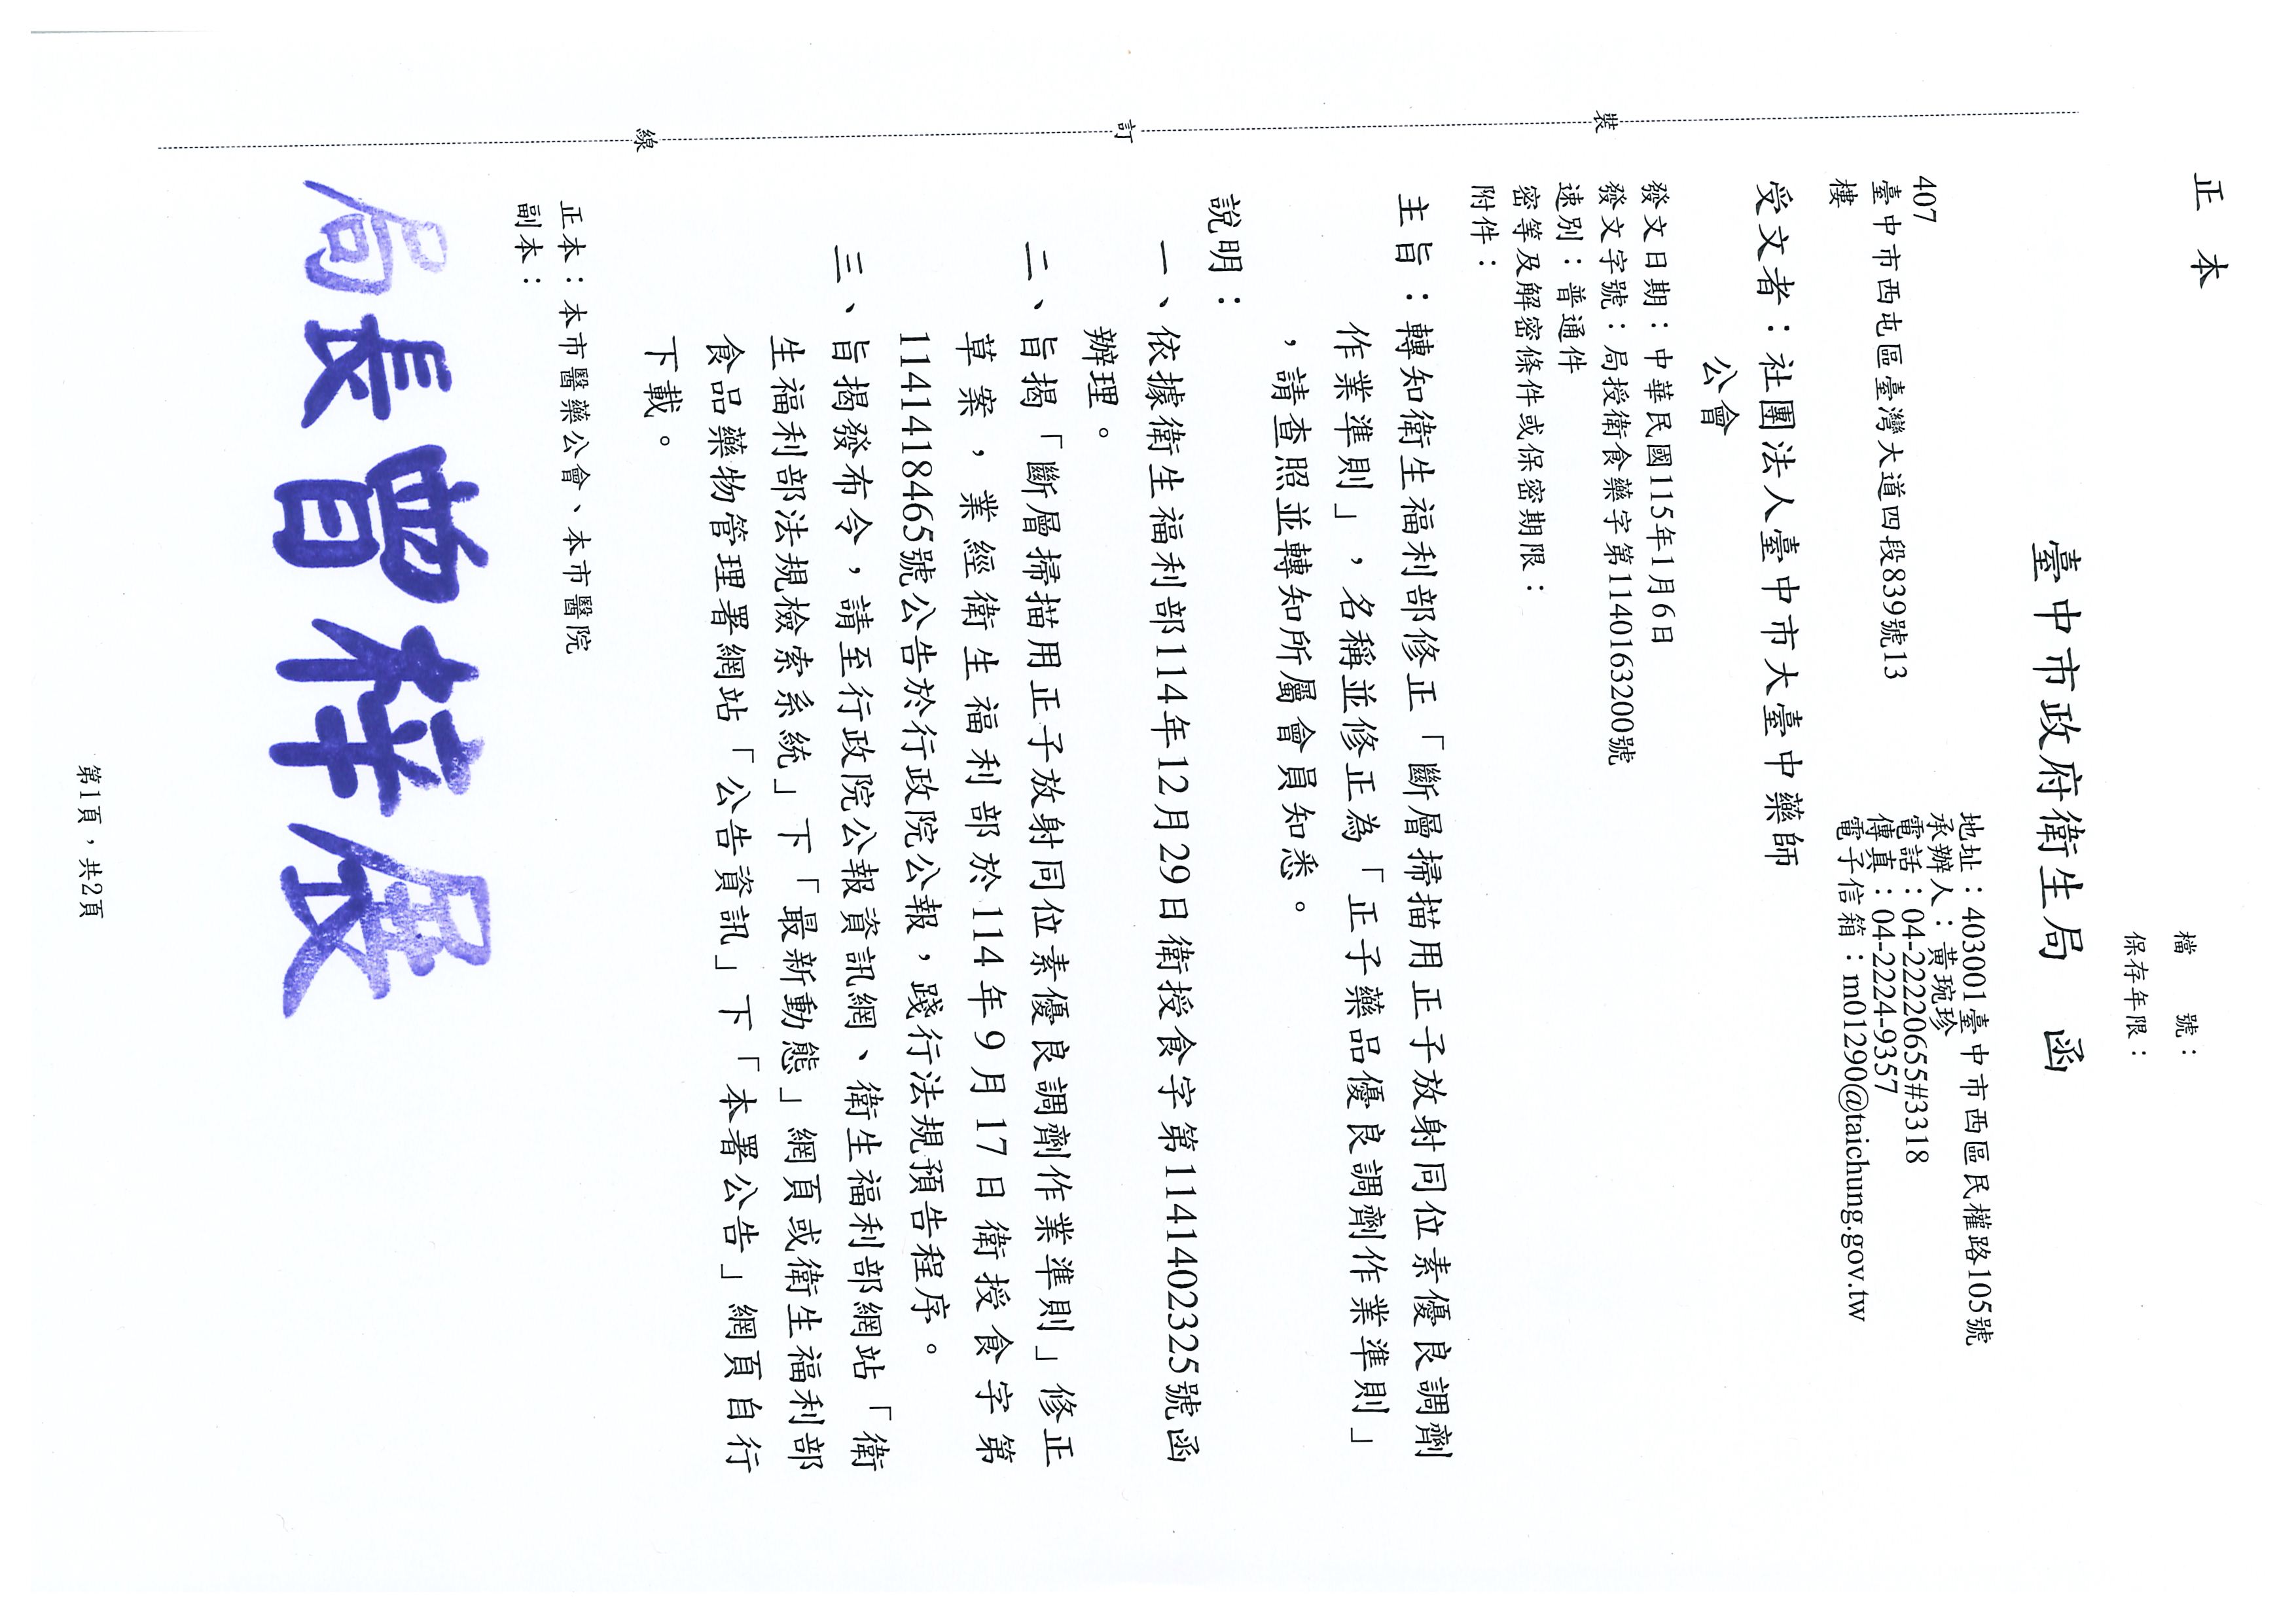 正本
檔　　號：
保存年限：
臺中市政府衛生局　函
地址：403001臺中市西區民權路105號
承辦人：黃琬珍
電話：04-22220655#3318
傳真：04-2224-9357
電子信箱：m01290@taichung.gov.tw
407
臺中市西屯區臺灣大道四段839號13
樓
受文者：社團法人臺中市大臺中藥師
公會
發文日期：中華民國115年1月6日
發文字號：局授衛食藥字第1140163200號
速別：普通件
密等及解密條件或保密期限：
附件：
主旨：轉知衛生福利部修正「斷層掃描用正子放射同位素優良調劑
作業準則」，名稱並修正為「正子藥品優良調劑作業準則」
，請查照並轉知所屬會員知悉。
說明：
一、依據衛生福利部114年12月29日衛授食字第1141402325號函
辦理。
二、旨揭「斷層掃描用正子放射同位素優良調劑作業準則」修正
草案，業經衛生福利部於114年9月17日衛授食字第
1141418465號公告於行政院公報，踐行法規預告程序。
三、旨揭發布令，請至行政院公報資訊網、衛生福利部網站「衛
生福利部法規檢索系統」下「最新動態」網頁或衛生福利部
食品藥物管理署網站「公告資訊」下「本署公告」網頁自行
下載。
正本：本市醫藥公會、本市醫院
副本：
局長曾梓展
裝
訂
線
第1頁，共2頁